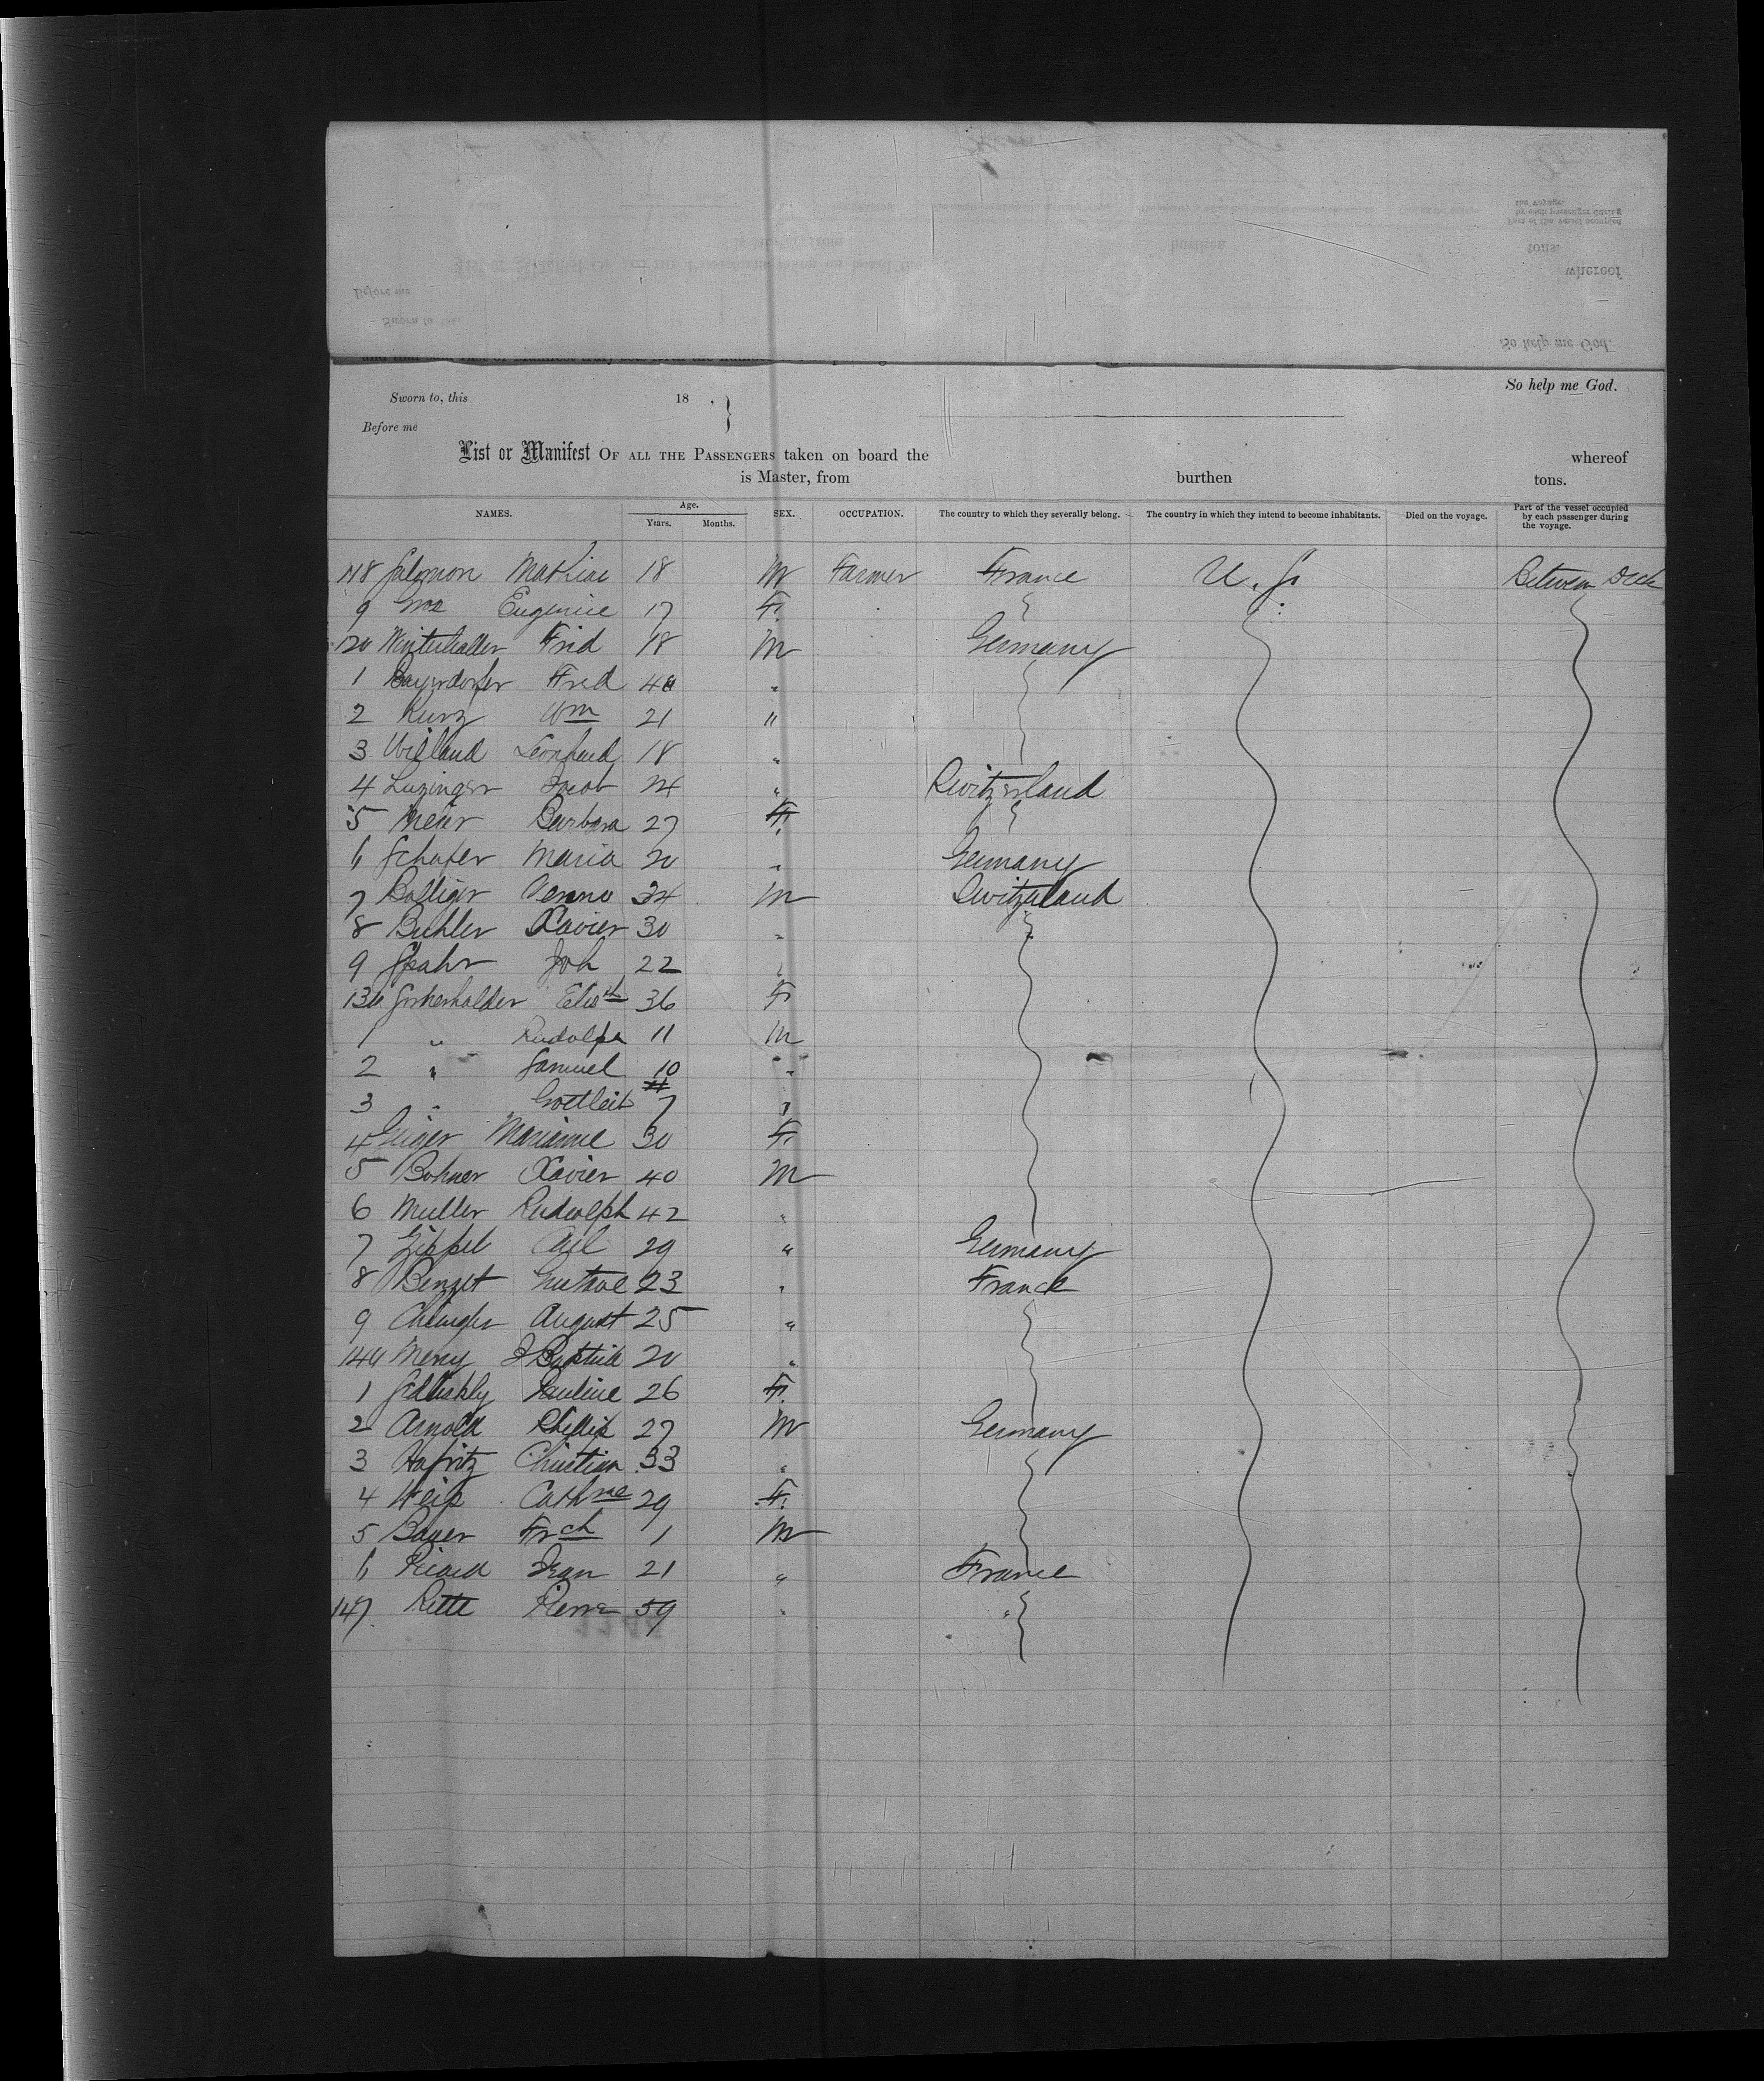 So help me God.
Sworn to, this 18 . }
Before me
List or Manifest OF ALL THE PASSENGERS taken on board the whereof
is Master, from burthen tons.
NAMES. Age. Years. Months. SEX. OCCUPATION. The country to which they severally belong. The country in which they intend to become inhabitants. Died on the voyage. Part of the vessel occupied by each passenger during the voyage.
118 Salomon Mathias 18 M Farmer France U. S. Between Deck
9 Eugenie 17 F.
120 Winterhalder Frid 18 M Germany
1 Bayersdorfer Fred
2 Kurz Wm 21 "
3 Wieland Leonhard 18 "
4 Luzinger Jacob 24 " Switzerland
5 Meier Barbara 27 F.
6 Schafer Maria 20 " Germany
7 Bolliger 34 M Switzerland
8 Buhler Xavier 30 "
9 Spahr Joh 22
130 Elisth 36 F
1 " Rudolph 11 M
2 " Samuel 10 "
3 " Gottleib 7 "
4 Geiger Marianne 30 F.
5 Bohner Xavier 40 M
6 Muller Rudolph 42 "
7 Zippel 29 " Germany
8 Gustave 23 " France
9 August 25 "
140 Mery J Baptist 20 "
1 Pauline 26 F.
2 Arnold Phillip 27 M Germany
3 Christian 33 "
4 Weis Cathne 29 F.
5 Bauer Frch 1 M
6 Jean 21 " France
147 Pierre 59 " "